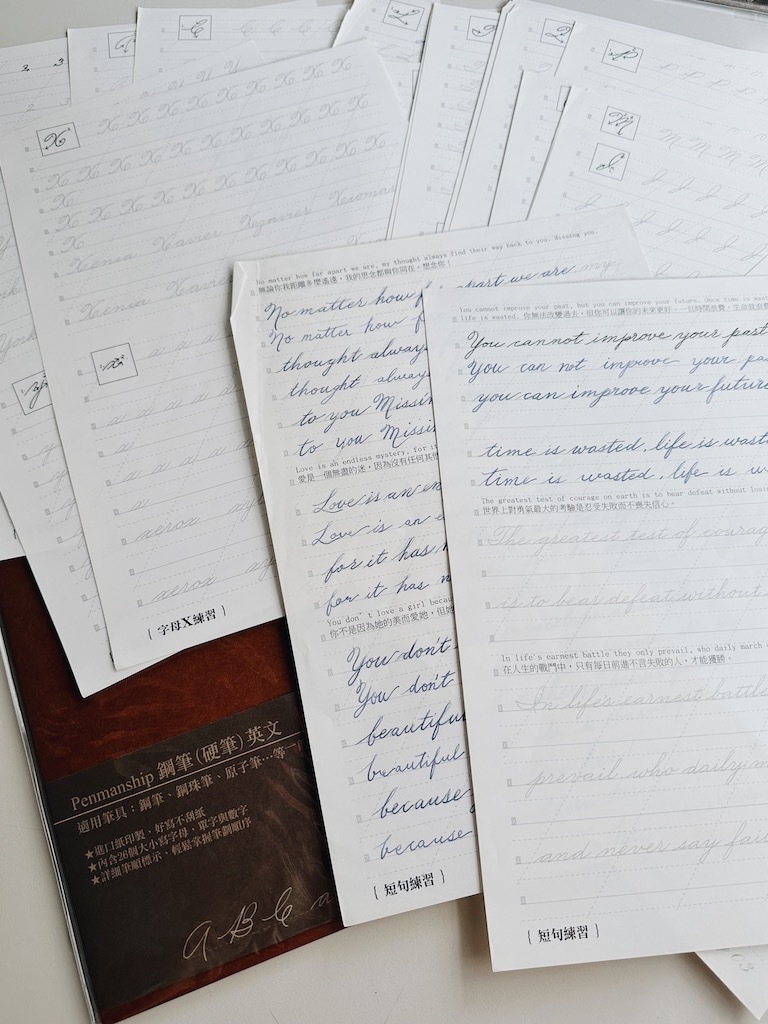 C
X
X X X X X X X X X
X X X X X X X X X
X X X X X X X X X
X
Xenia Xavier Xzavier Xiomar
Xenia Xavier
x
x
xerox
xerox
{ 字母X練習 }
P
M
No matter how far apart we are, my thought always find their way back to you. Missing you.
無論你我距離多麼遙遠，我的思念都與你同在。想念你！
No matter how far apart we are my
No matter how f
thought alway
thought alway
to you Missin
to you Missi
Love is an endless mystery, for it
愛是一個無盡的迷，因為沒有任何其他
Love is an en
Love is an e
for it has n
for it has n
You don't love a girl becau
你不是因為她的美而愛她，但她
You don't
You don't
beautiful
beautiful
because
because
{ 短句練習 }
You cannot improve your past, but you can improve your future. Once time is wast
life is wasted. 你無法改變過去，但你可以讓你的未來更好。一旦時間浪費，生命就浪費
You cannot improve your past
You can not improve your pas
you can improve your future
time is wasted, life is wast
time is wasted, life is w
The greatest test of courage on earth is to bear defeat without losin
世界上對勇氣最大的考驗是忍受失敗而不喪失信心。
The greatest test of courag
is to bear defeat without
In life's earnest battle they only prevail, who daily march o
在人生的戰鬥中，只有每日前進不言失敗的人，才能獲勝。
In life's earnest battle
prevail who daily m
and never say fail
{ 短句練習 }
Penmanship 鋼筆(硬筆)英文
適用筆具：鋼筆、鋼珠筆、原子筆…等
★進口紙印製，好寫不刮紙
★內含26個大小寫字母，單字與數字
★詳細筆順標示，輕鬆掌握筆劃順序
A B C